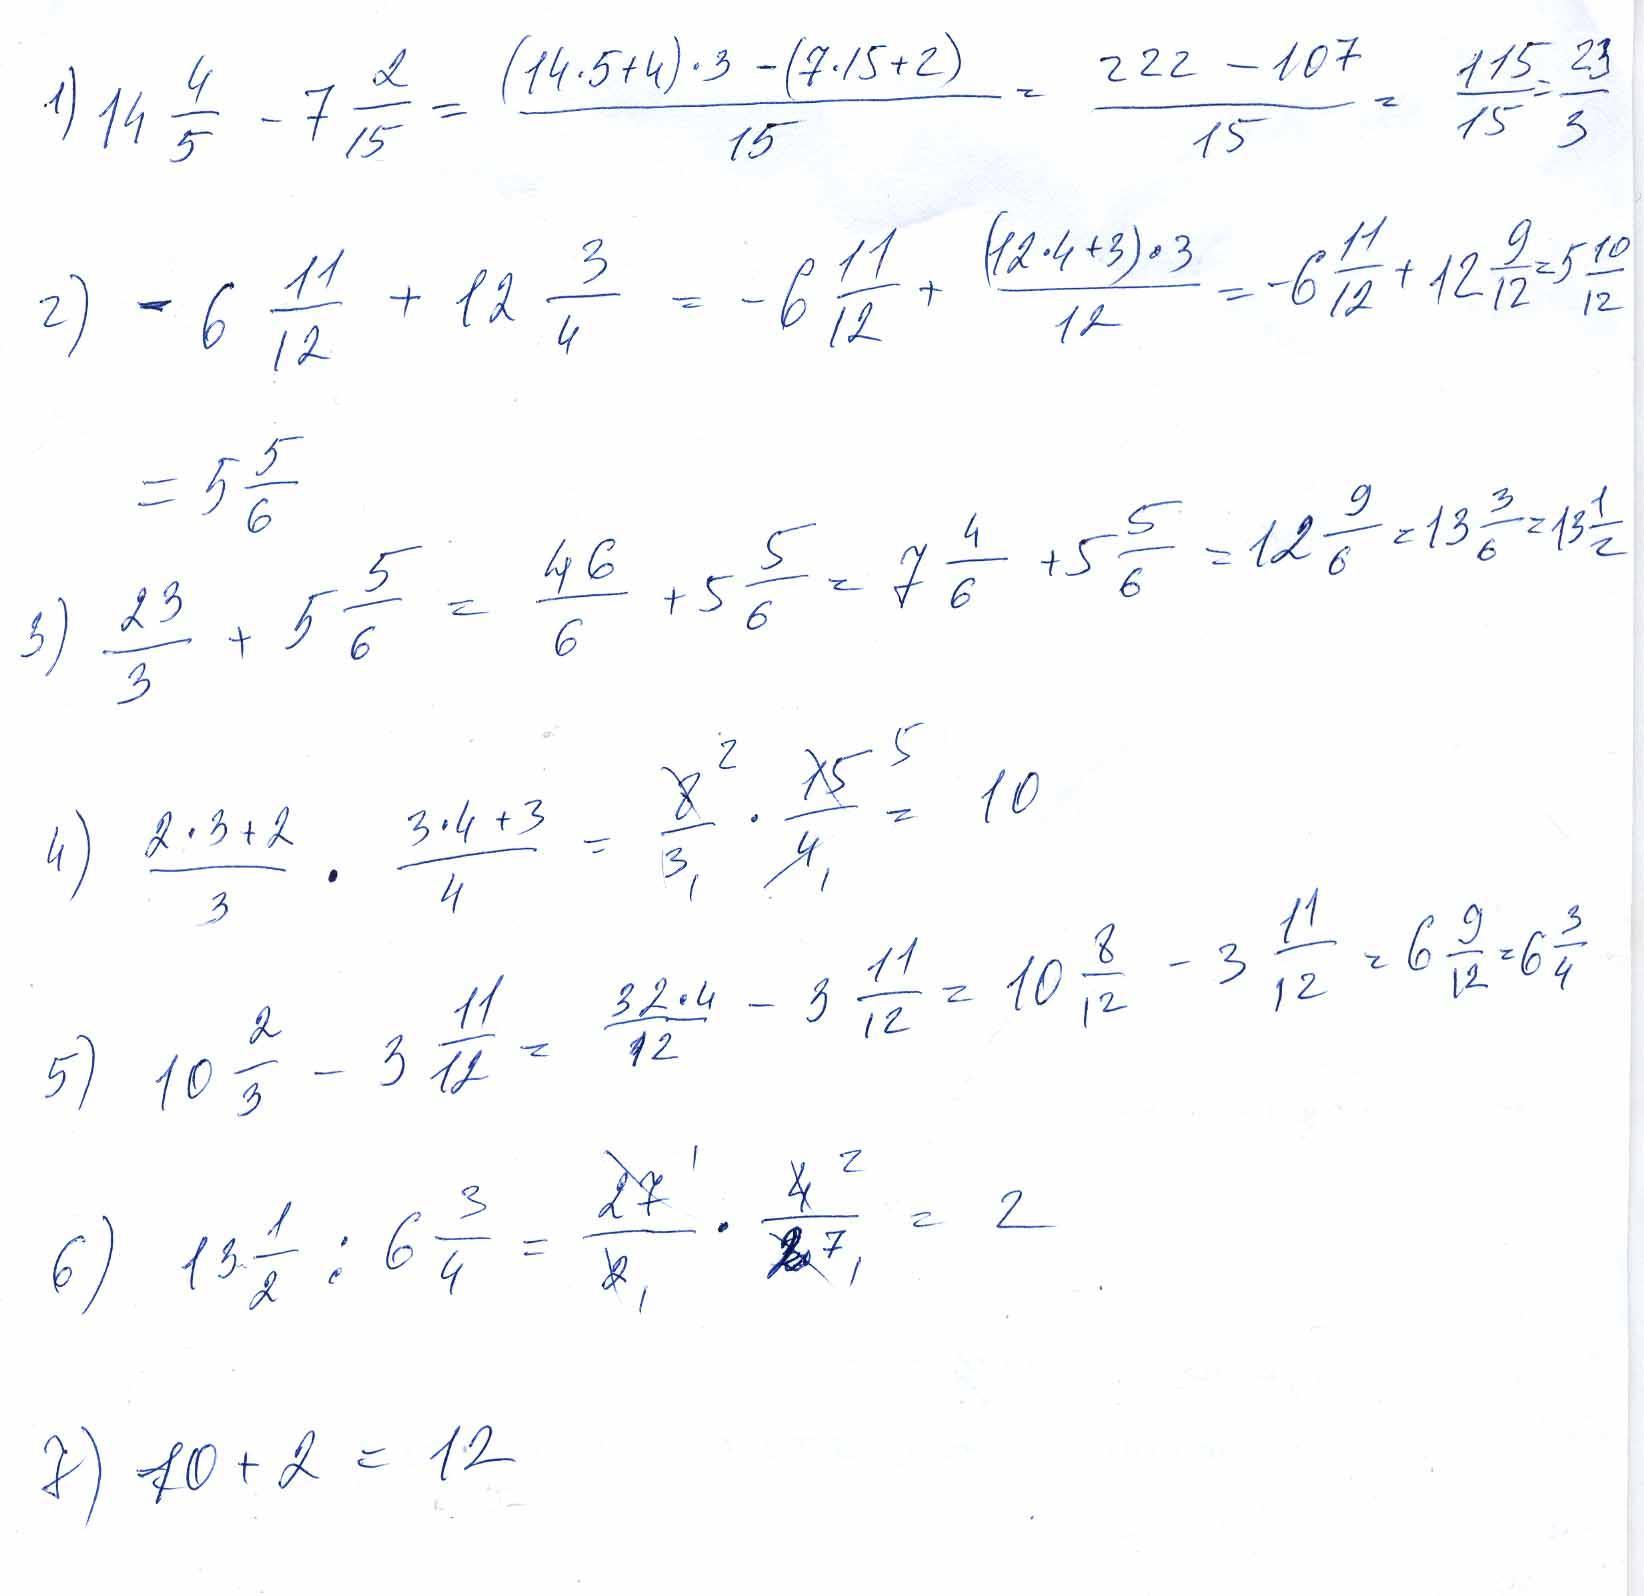 1) 14 4/5 - 7 2/15 = ((14·5+4)·3 - (7·15+2))/15 = (222 - 107)/15 = 115/15 = 23/3
2) - 6 11/12 + 12 3/4 = - 6 11/12 + ((12·4+3)·3)/12 = - 6 11/12 + 12 9/12 = 5 10/12
= 5 5/6
3) 23/3 + 5 5/6 = 46/6 + 5 5/6 = 7 4/6 + 5 5/6 = 12 9/6 = 13 3/6 = 13 1/2
4) (2·3+2)/3 · (3·4+3)/4 = 8 2/3 1 · 15 5/4 1 = 10
5) 10 2/3 - 3 11/12 = 32·4/12 - 3 11/12 = 10 8/12 - 3 11/12 = 6 9/12 = 6 3/4
6) 13 1/2 : 6 3/4 = 27 1/2 1 · 4 2/27 1 = 2
7) 10 + 2 = 12